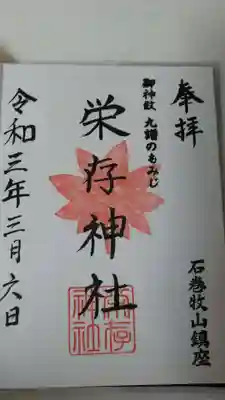 奉拝
石巻牧山鎮座
御神紋 丸譜のもみじ
栄存神社
令和三年三月六日
栄存神社